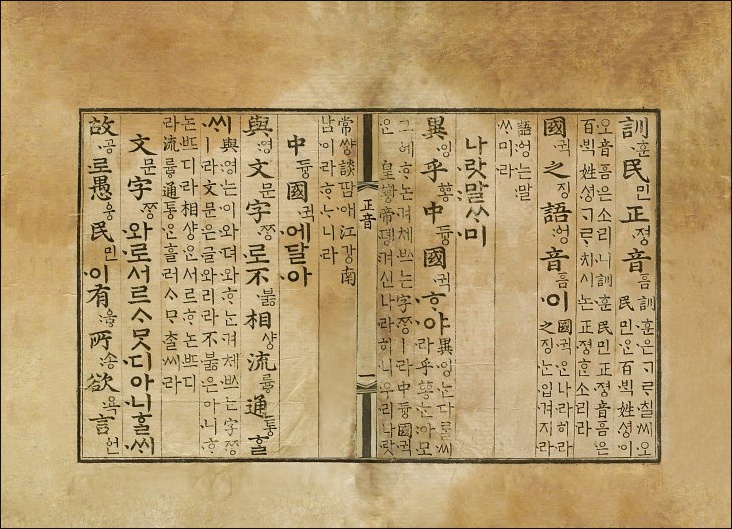 訓훈民민正졍音흠 訓훈은ᄀᆞᄅᆞ칠씨오
民민ᄋᆞᆫ百ᄇᆡᆨ姓셩이
오音흠은소리니訓훈民민正졍音흠은
百ᄇᆡᆨ姓셩ᄀᆞᄅᆞ치시논正졍훈소리라
國귁之징語ᅌᅥᆼ音흠이 國귁ᄋᆞᆫ나라히라
之징ᄂᆞᆫ입겨지라
語ᅌᅥᆼ는말
ᄊᆞ미라
나랏말ᄊᆞ미
異잉乎ᅘᅩᆼ中듕國귁ᄒᆞ야 異잉ᄂᆞᆫ다ᄅᆞᆯ씨
라乎ᅘᅩᆼᄂᆞᆫ아모
그ᅌᅦᄒᆞ논겨체ᄡᅳ는字ᄍᆞᆼㅣ라中듕國귁
ᄋᆞᆫ皇ᅘᅪᆼ帝뎽겨신나라히니우리나랏
正音 一
常쌍談땀애江강南
남이라ᄒᆞᄂᆞ니라
中듕國귁에달아
與영文문字ᄍᆞᆼ로不붏相샹流륳通통ᄒᆞᆯ
ᄊᆡ 與영는이와뎌와ᄒᆞ는겨체ᄡᅳ는字ᄍᆞᆼ
ㅣ라文문은글와리라不붏은아니ᄒᆞ
논ᄠᅳ디라相샹ᄋᆞᆫ서르ᄒᆞ논ᄠᅳ디
라流륳通통ᄋᆞᆫ흘러ᄉᆞᄆᆞᄎᆞᆯ씨라
文문字ᄍᆞᆼ와로서르ᄉᆞᄆᆞᆺ디아니ᄒᆞᆯᄊᆡ
故공로愚ᅌᅮᆼ民민이有ᅌᅮᇢ所송欲욕言언